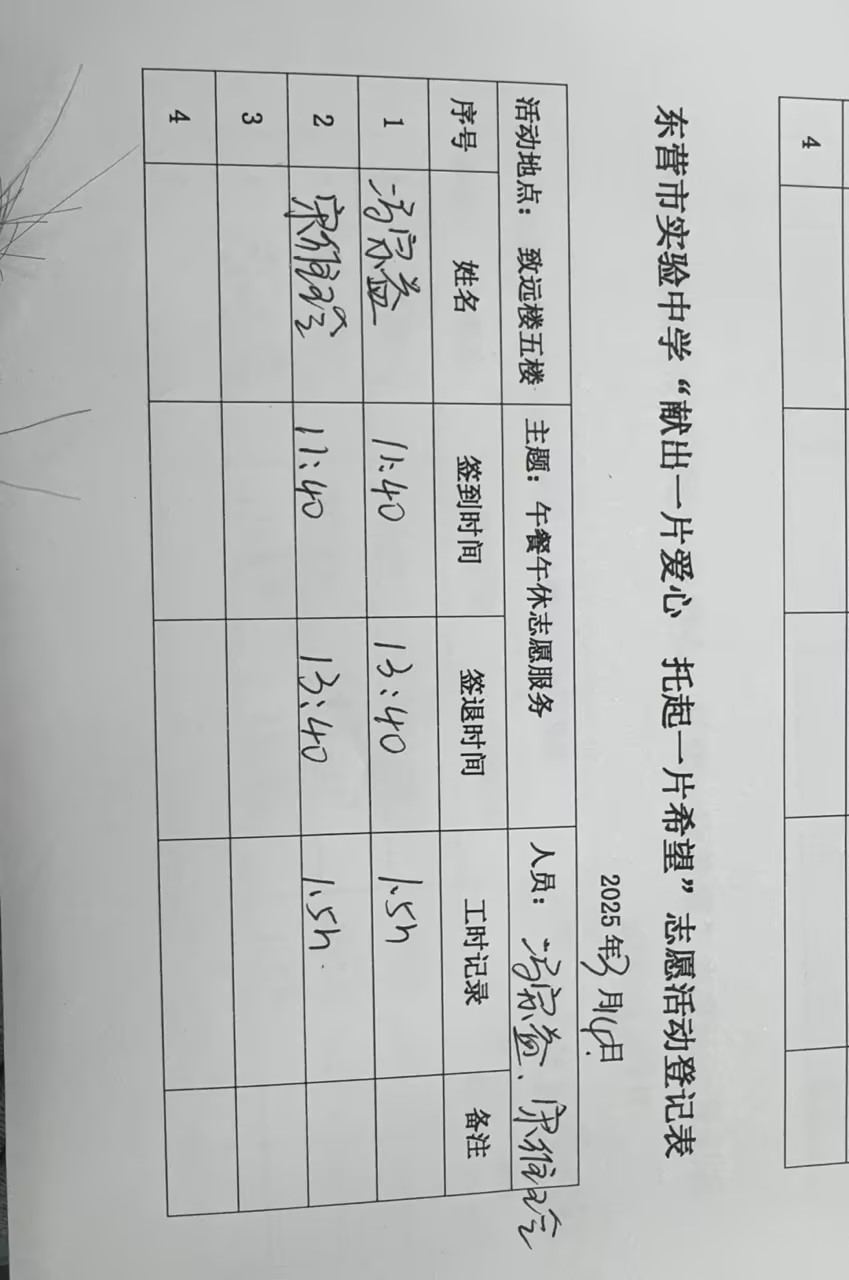 4
东营市实验中学“献出一片爱心 托起一片希望”志愿活动登记表
2025年3月14日
活动地点： 致远楼五楼 主题：午餐午休志愿服务 人员：冯宗益、
序号 姓名 签到时间 签退时间 工时记录 备注
1 冯宗益 11:40 13:40 1.5h
2 11:40 13:40 1.5h.
3
4